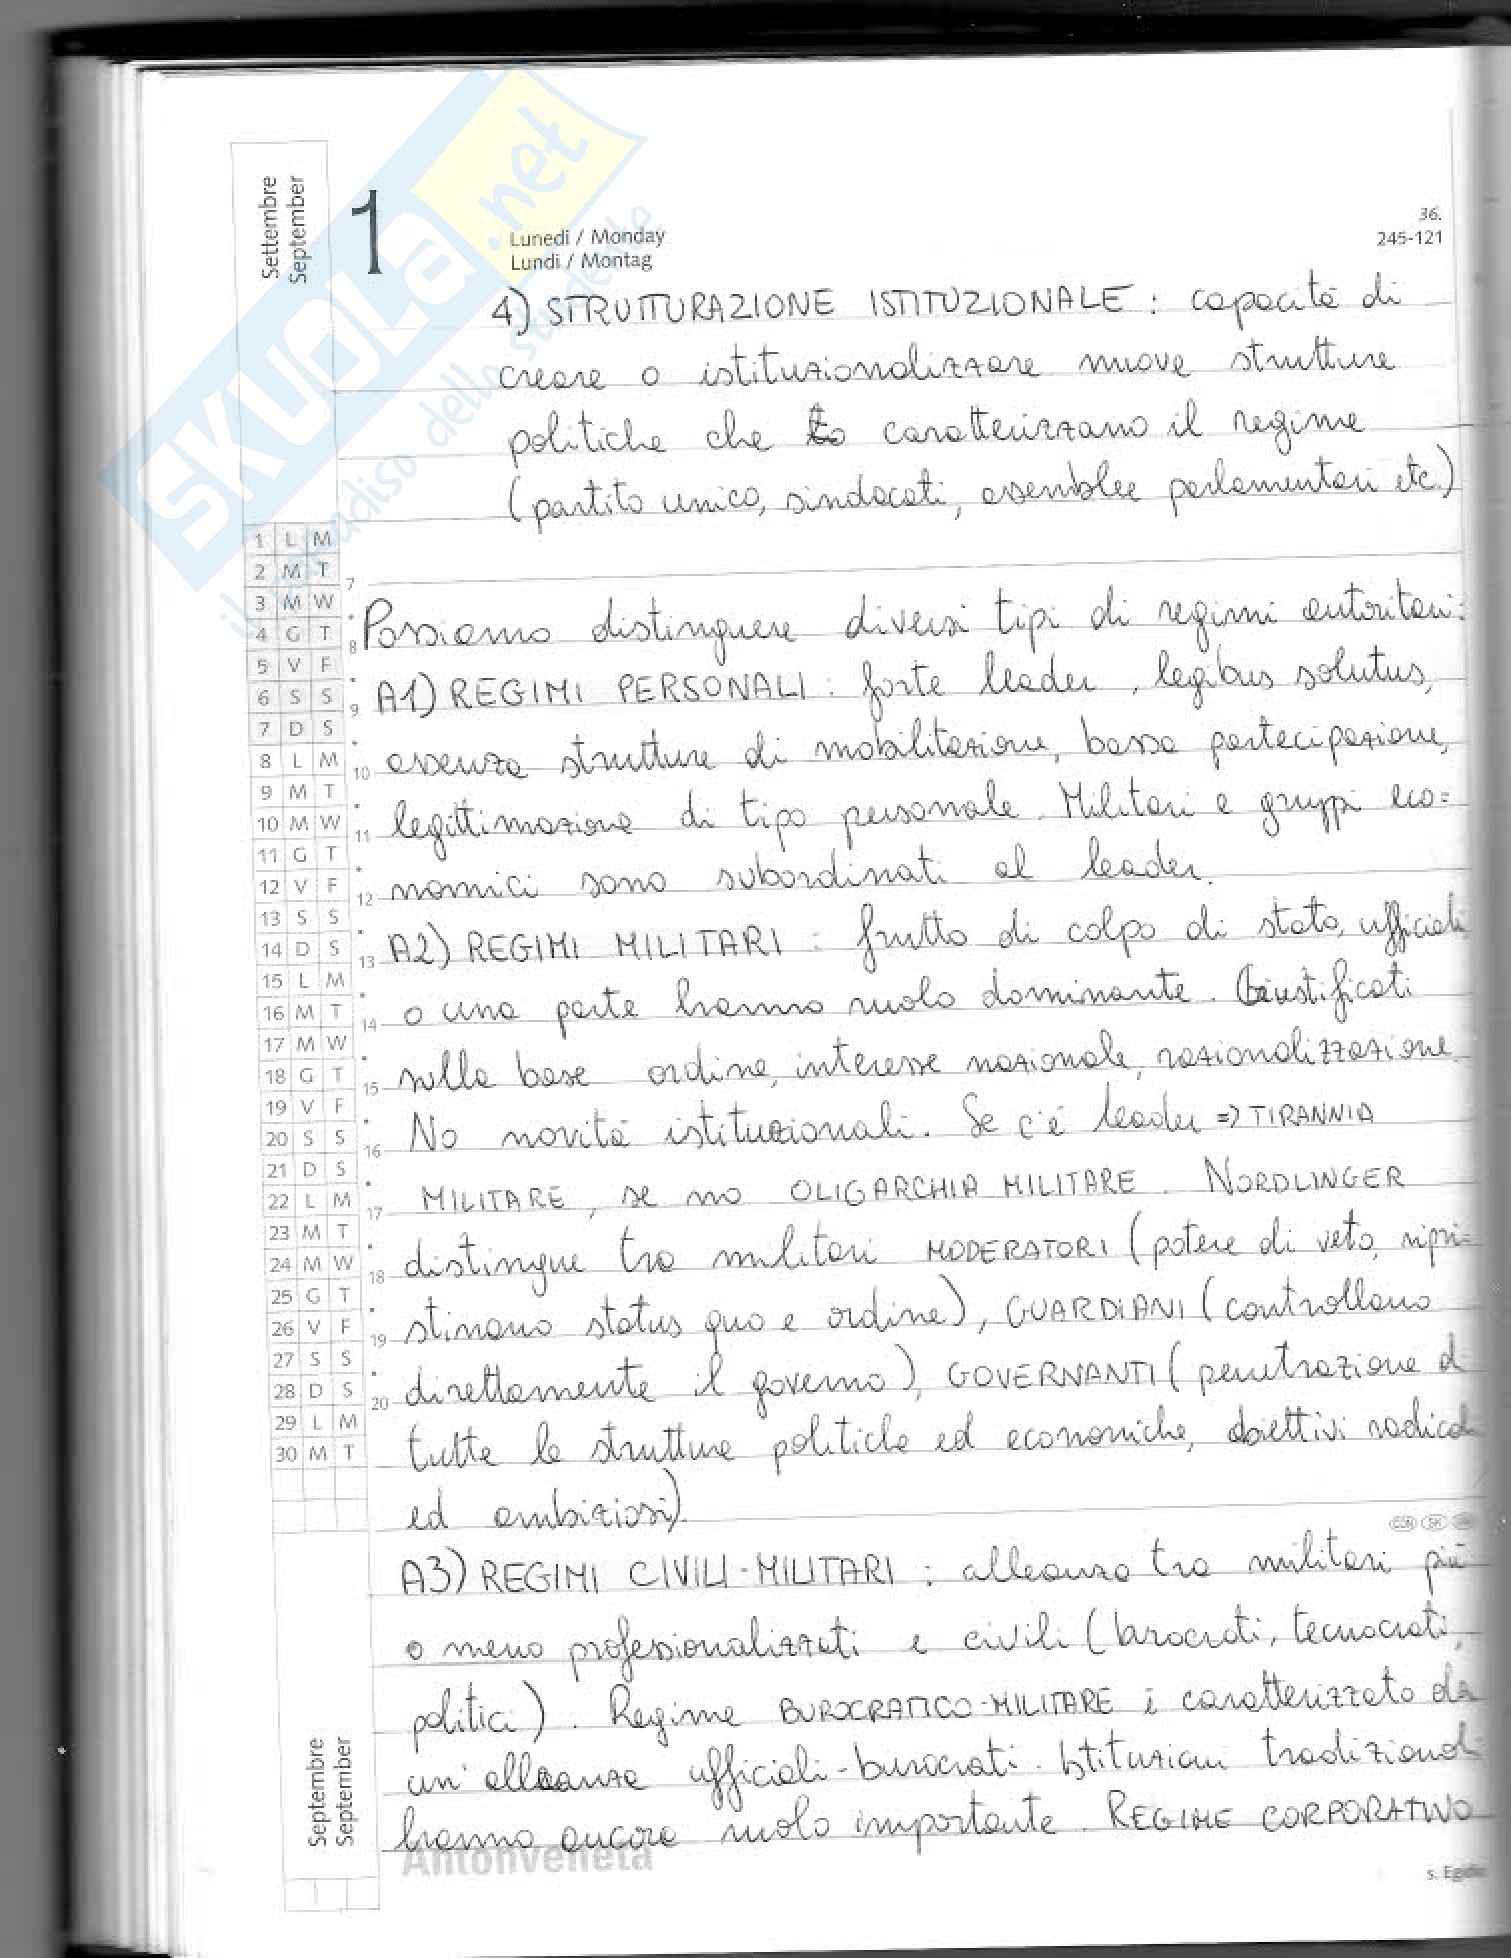 Settembre
September
1
Lunedì / Monday
Lundi / Montag
36.
245-121
SKUOLA.net
il paradiso dello studente
4) STRUTTURAZIONE ISTITUZIONALE : capacità di
creare o istituzionalizzare nuove strutture
politiche che caratterizzano il regime
(partito unico, sindacati, assemblee parlamentari etc.)
Possiamo distinguere diversi tipi di regimi autoritari:
A1) REGIMI PERSONALI : forte leader, legibus solutus,
assenza strutture di mobilitazione, bassa partecipazione,
legittimazione di tipo personale. Militari e gruppi eco=
nomici sono subordinati al leader.
A2) REGIMI MILITARI : frutto di colpo di stato, ufficiali
o una parte hanno ruolo dominante. Giustificati
sulla base ordine, interesse nazionale, razionalizzazione.
No novità istituzionali. Se c'è leader => TIRANNIA
MILITARE, se no OLIGARCHIA MILITARE. NORDLINGER
distingue tra militari MODERATORI (potere di veto, ripri=
stinano status quo e ordine), GUARDIANI (controllano
direttamente il governo), GOVERNANTI (penetrazione di
tutte le strutture politiche ed economiche, obiettivi radicali
ed ambiziosi).
A3) REGIMI CIVILI-MILITARI : alleanza tra militari più
o meno professionalizzati e civili (burocrati, tecnocrati,
politici). Regime BUROCRATICO-MILITARE è caratterizzato da
un'alleanza ufficiali-burocrati. Istituzioni tradizionali
hanno ancora ruolo importante. REGIME CORPORATIVO
1 L M
2 M T
3 M W
4 G T
5 V F
6 S S
7 D S
8 L M
9 M T
10 M W
11 G T
12 V F
13 S S
14 D S
15 L M
16 M T
17 M W
18 G T
19 V F
20 S S
21 D S
22 L M
23 M T
24 M W
25 G T
26 V F
27 S S
28 D S
29 L M
30 M T
7
8
9
10
11
12
13
14
15
16
17
18
19
20
Septembre
September
Antonveneta
s. Egidio